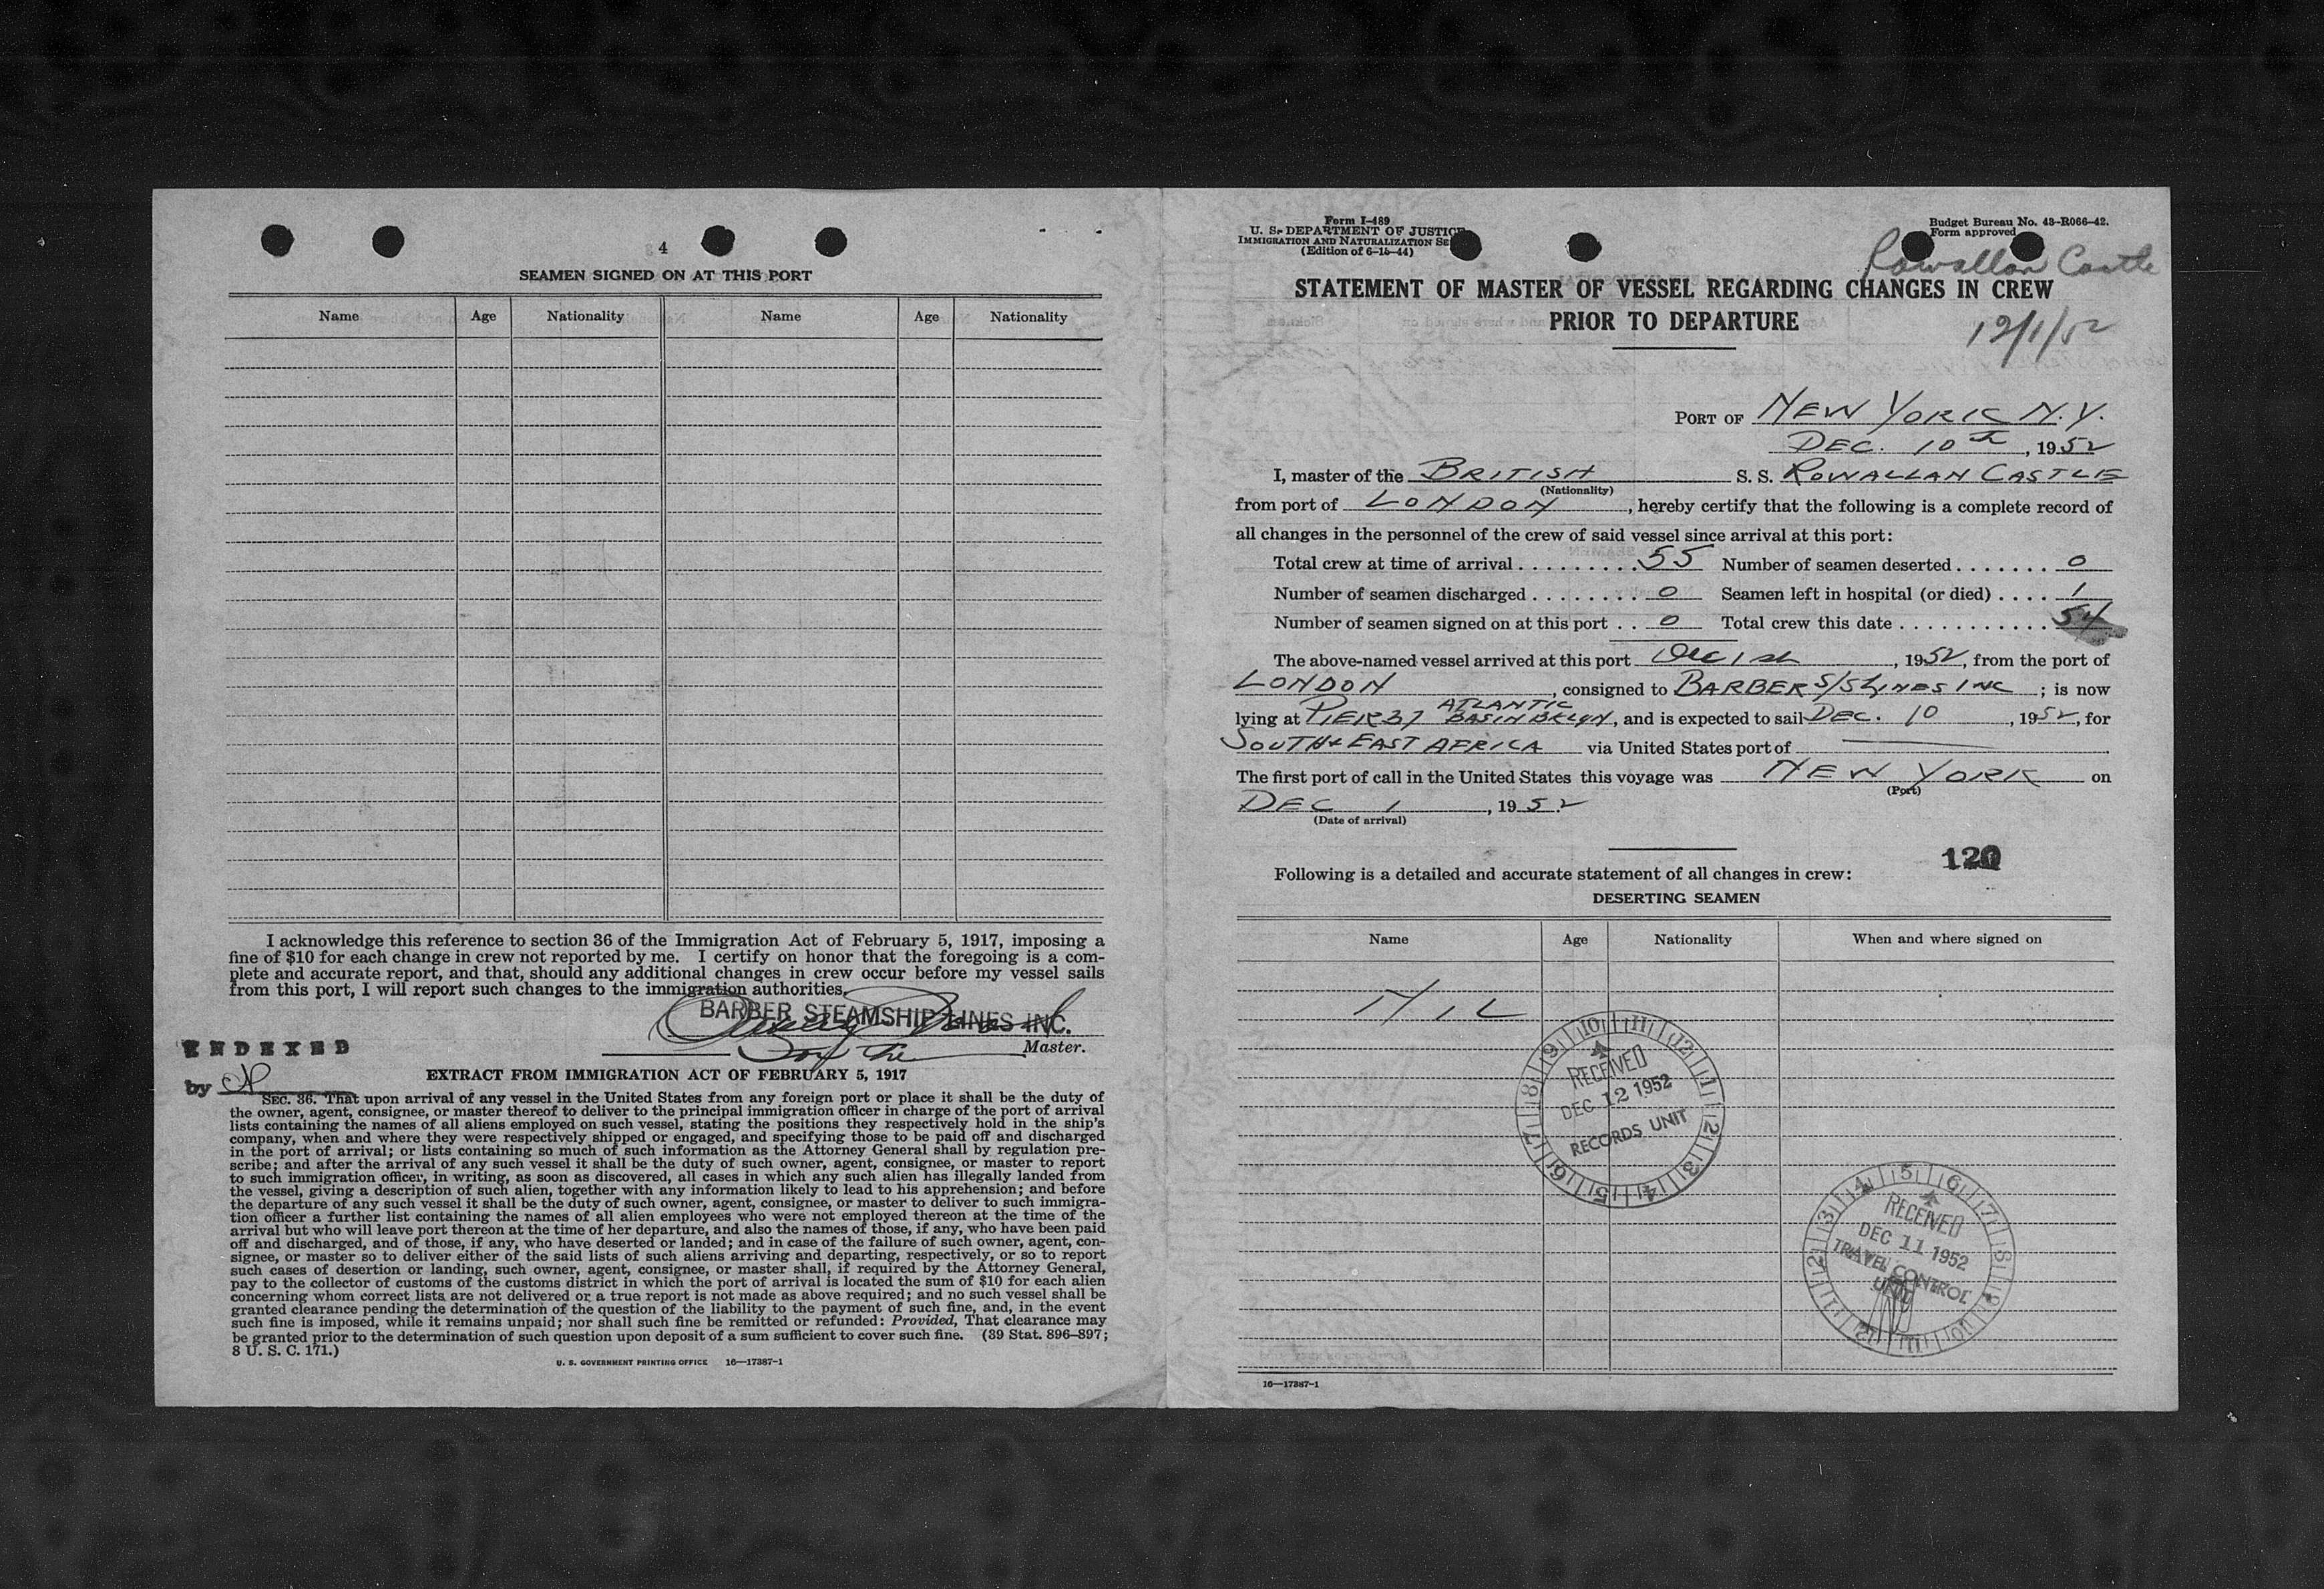 4
SEAMEN SIGNED ON AT THIS PORT
Name Age Nationality Name Age Nationality
I acknowledge this reference to section 36 of the Immigration Act of February 5, 1917, imposing a
fine of $10 for each change in crew not reported by me. I certify on honor that the foregoing is a com-
plete and accurate report, and that, should any additional changes in crew occur before my vessel sails
from this port, I will report such changes to the immigration authorities.
BARBER STEAMSHIP LINES INC.
For the Master.
INDEXED
by
EXTRACT FROM IMMIGRATION ACT OF FEBRUARY 5, 1917
SEC. 36. That upon arrival of any vessel in the United States from any foreign port or place it shall be the duty of
the owner, agent, consignee, or master thereof to deliver to the principal immigration officer in charge of the port of arrival
lists containing the names of all aliens employed on such vessel, stating the positions they respectively hold in the ship's
company, when and where they were respectively shipped or engaged, and specifying those to be paid off and discharged
in the port of arrival; or lists containing so much of such information as the Attorney General shall by regulation pre-
scribe; and after the arrival of any such vessel it shall be the duty of such owner, agent, consignee, or master to report
to such immigration officer, in writing, as soon as discovered, all cases in which any such alien has illegally landed from
the vessel, giving a description of such alien, together with any information likely to lead to his apprehension; and before
the departure of any such vessel it shall be the duty of such owner, agent, consignee, or master to deliver to such immigra-
tion officer a further list containing the names of all alien employees who were not employed thereon at the time of the
arrival but who will leave port thereon at the time of her departure, and also the names of those, if any, who have been paid
off and discharged, and of those, if any, who have deserted or landed; and in case of the failure of such owner, agent, con-
signee, or master so to deliver either of the said lists of such aliens arriving and departing, respectively, or so to report
such cases of desertion or landing, such owner, agent, consignee, or master shall, if required by the Attorney General,
pay to the collector of customs of the customs district in which the port of arrival is located the sum of $10 for each alien
concerning whom correct lists are not delivered or a true report is not made as above required; and no such vessel shall be
granted clearance pending the determination of the question of the liability to the payment of such fine, and, in the event
such fine is imposed, while it remains unpaid; nor shall such fine be remitted or refunded: Provided, That clearance may
be granted prior to the determination of such question upon deposit of a sum sufficient to cover such fine. (39 Stat. 896–897;
8 U. S. C. 171.)
U. S. GOVERNMENT PRINTING OFFICE 16—17387-1
Form I-489
U. S. DEPARTMENT OF JUSTICE
IMMIGRATION AND NATURALIZATION SE
(Edition of 6-15-44)
Budget Bureau No. 43-R066-42.
Form approved
Rowallan Castle
STATEMENT OF MASTER OF VESSEL REGARDING CHANGES IN CREW
PRIOR TO DEPARTURE
12/1/52
PORT OF NEW YORK N.Y.
DEC. 10th, 1952
I, master of the BRITISH S. S. ROWALLAN CASTLE
(Nationality)
from port of LONDON, hereby certify that the following is a complete record of
all changes in the personnel of the crew of said vessel since arrival at this port:
Total crew at time of arrival ......... 55 Number of seamen deserted ....... 0
Number of seamen discharged ........ 0 Seamen left in hospital (or died) .... 1
Number of seamen signed on at this port .. 0 Total crew this date ............ 54
The above-named vessel arrived at this port Dec 1st, 1952, from the port of
LONDON, consigned to BARBER S/S LINES INC; is now
lying at PIER 37 ATLANTIC BASIN BKLYN, and is expected to sail DEC. 10, 1952, for
SOUTH & EAST AFRICA via United States port of
The first port of call in the United States this voyage was NEW YORK on
(Port)
DEC 1, 1952
(Date of arrival)
120
Following is a detailed and accurate statement of all changes in crew:
DESERTING SEAMEN
Name Age Nationality When and where signed on
NIL
10 11 12 1 2 3 4 5 6 7 8 9
RECEIVED
DEC 12 1952
RECORDS UNIT
5 6 7 8 9 10 11 12 1 2 3 4
RECEIVED
DEC 11 1952
TRAVEL CONTROL
UNIT
16—17387-1